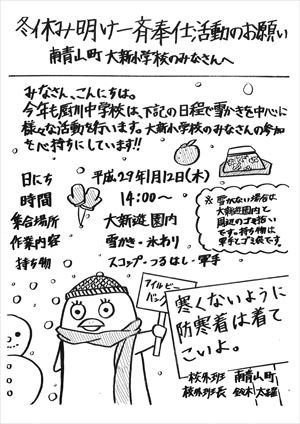 冬休み明け一斉奉仕活動のお願い
南青山町 大新小学校のみなさんへ
みなさん、こんにちは。
今年も厨川中学校は、下記の日程で雪かきを中心に
様々な活動を行います。大新小学校のみなさんの参加
を心待ちにしています!!
日にち 平成29年1月12日(木)
時間 14:00〜
集合場所 大新遊園内
作業内容 雪かき・氷わり
持ち物 スコップ・つるはし・軍手
※雪がない場合は
大新遊園内で
周辺のゴミ拾い
です。持ち物は
軍手とゴミ袋です。
アイルビー
寒くないように
防寒着は着て
こいよ。
校外班 南青山町
校外班長 鈴木